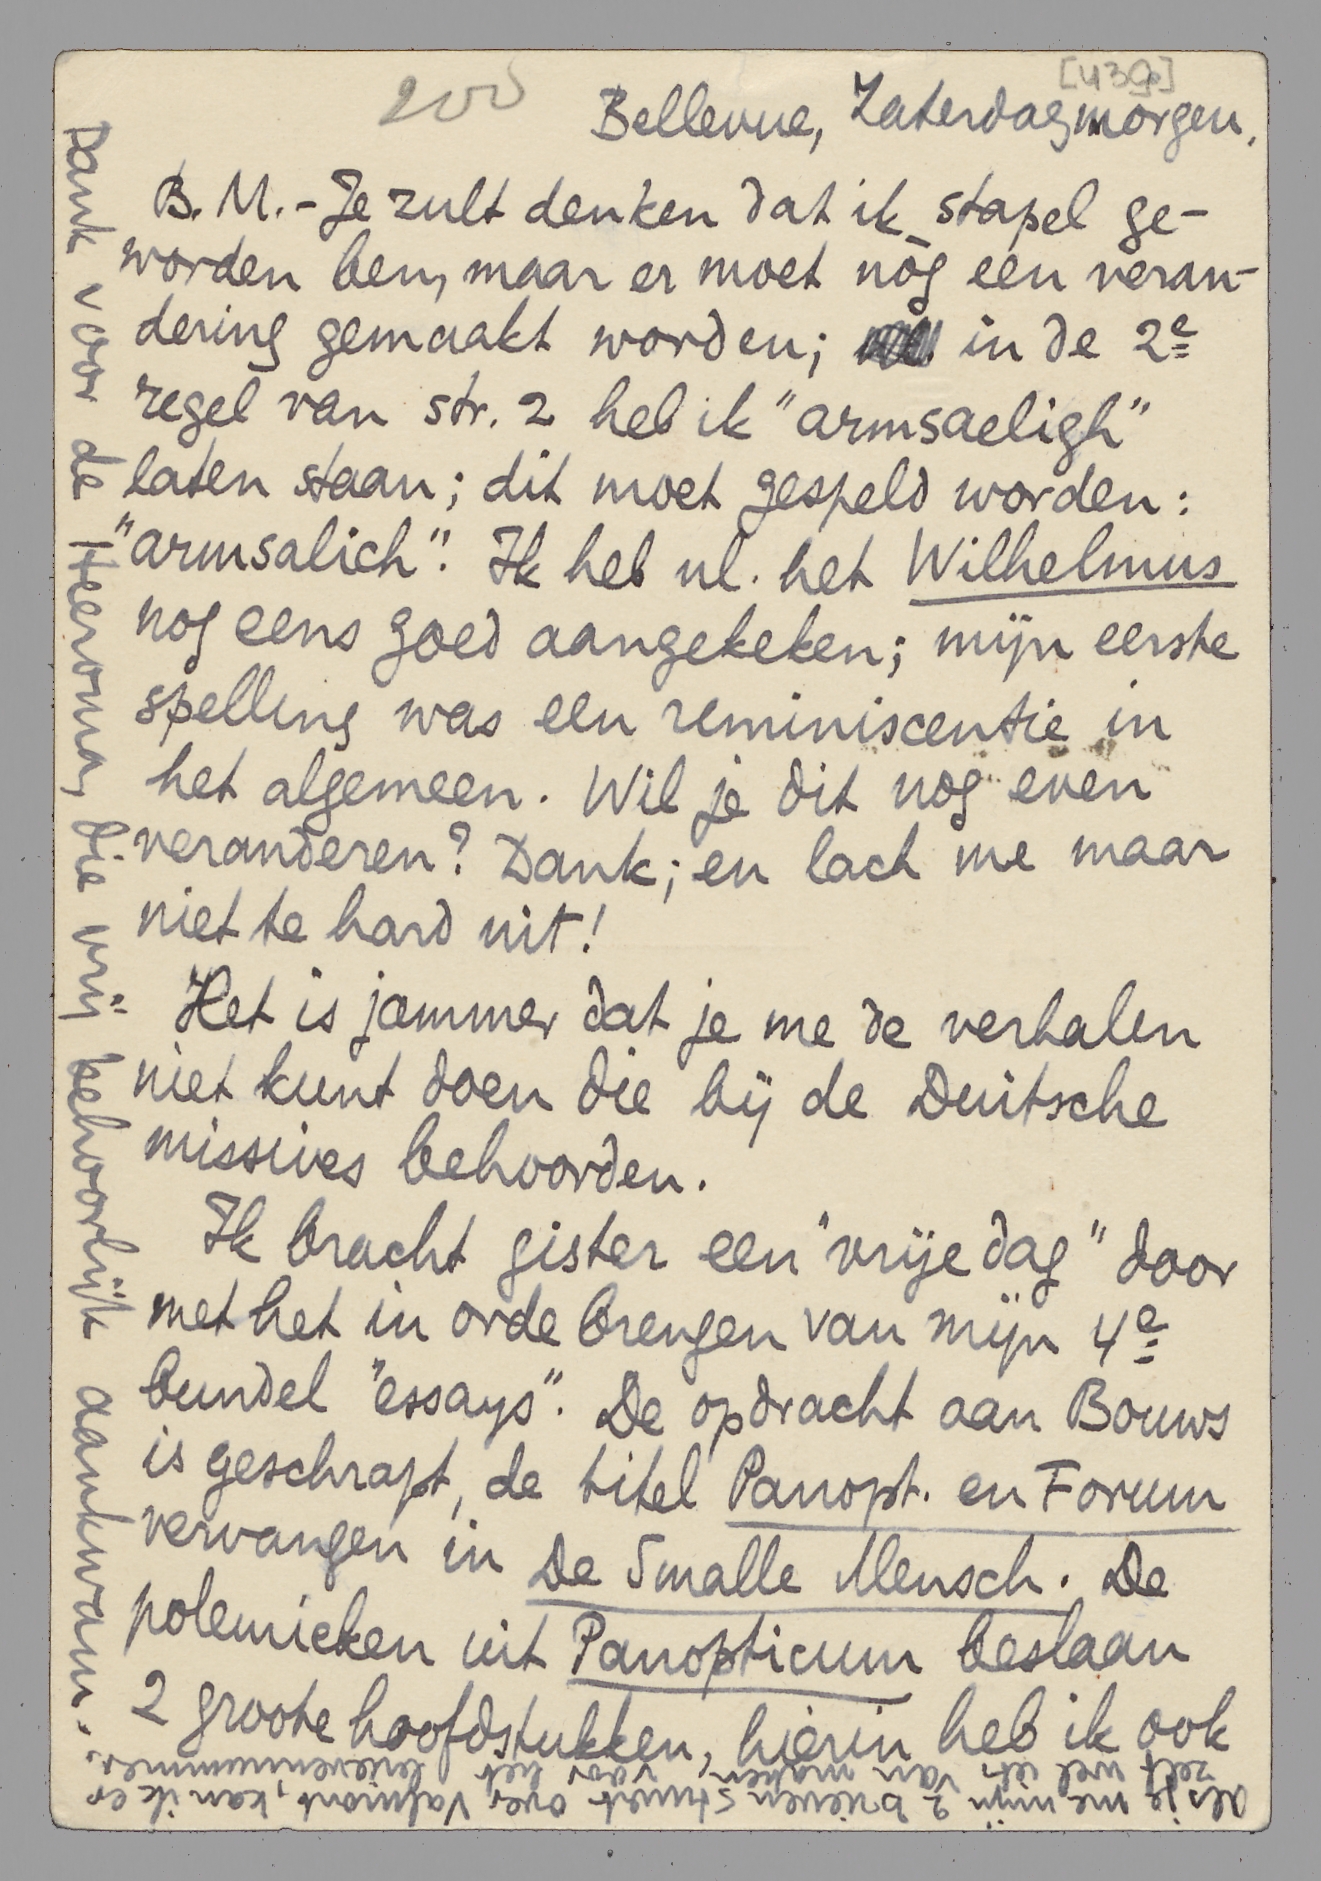 200
[439]
Bellevue, Zaterdagmorgen.
B. M. - Je zult denken dat ik stapel ge-
worden ben, maar er moet nòg een veran-
dering gemaakt worden; in de 2e
regel van str. 2 heb ik "armsaeligh"
laten staan; dit moet gespeld worden:
"armsalich". Ik heb nl. het Wilhelmus
nog eens goed aangekeken; mijn eerste
spelling was een reminiscentie in
het algemeen. Wil je dit nog even
veranderen? Dank; en lach me maar
niet te hard uit!
Het is jammer dat je me de verhalen
niet kunt doen die bij de Duitsche
missives behoorden.
Ik bracht gister een "vrije dag" door
met het in orde brengen van mijn 4e
bundel "essays". De opdracht aan Bouws
is geschrapt, de titel Panopt. en Forum
vervangen in De Smalle Mensch. De
polemieken uit Panopticum beslaan
2 groote hoofdstukken, hierin heb ik ook
Dank voor de Heeroma, die vrij behoorlijk aankwam.
Als je me mijn 2 brieven stuurt over Valmont, kan ik er
zelf wel iets van maken voor het brievennummer.